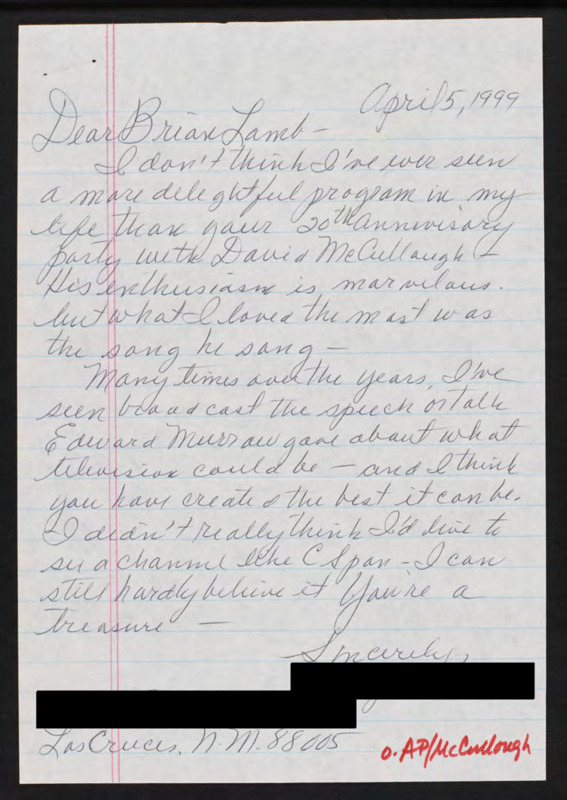 April 5, 1999
Dear Brian Lamb -
I don't think I've ever seen
a more delightful program in my
life than your 20th annivisary
party with David McCullaugh -
His enthusiasm is marvelous.
but what I loved the most was
the song he sang -
Many times over the years, I've
seen broadcast the speech or talk
Edward Murrow gave about what
television could be - and I think
you have created the best it can be.
I didn't really think I'd live to
see a channel like C Span - I can
still hardly believe it You're a
treasure -
Sincerely,
Las Cruces, N.M. 88005
O. AP/McCullough